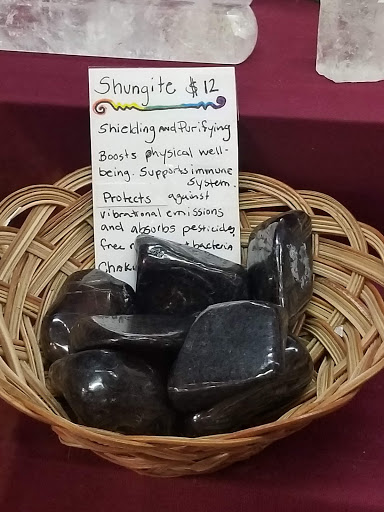 Shungite $12
Shielding and Purifying
Boosts physical well-
being. Supports immune
System.
Protects against
vibrational emissions
and absorbs pesticides,
free bacteria